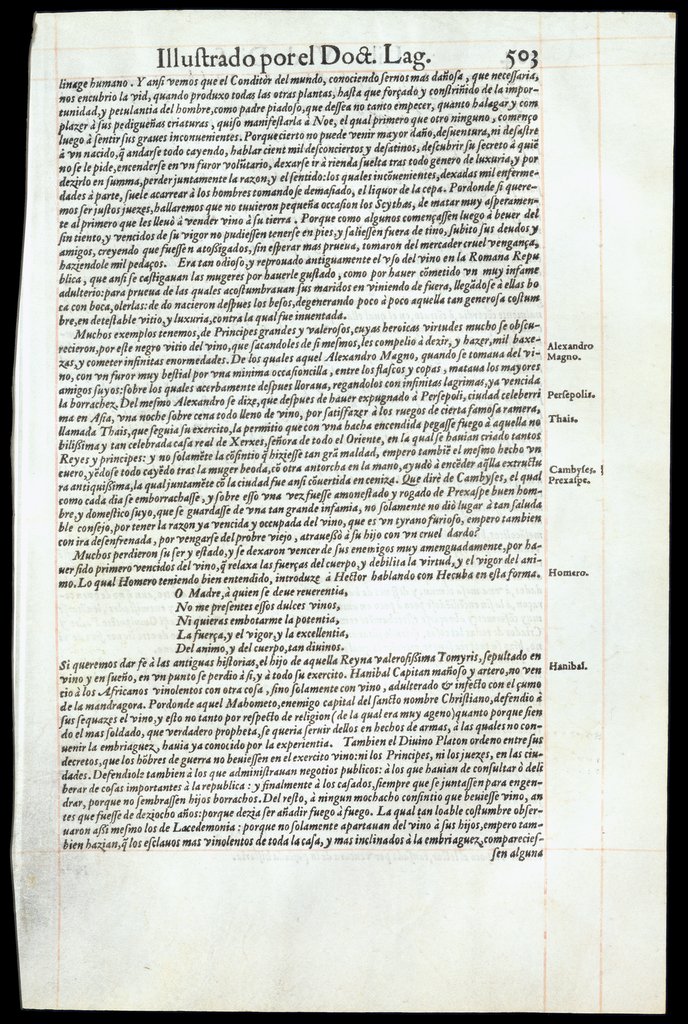 Illuſtrado por el Doct. Lag. 503
linage humano. Y anſi vemos que el Conditor del mundo, conociendo ſernos mas dañoſa, que neceſſaria,
nos encubrio la vid, quando produxo todas las otras plantas, haſta que forçado y conſtriñido de la impor-
tunidad, y petulantia del hombre, como padre piadoſo, que deſſea no tanto empecer, quanto halagar y com
plazer à ſus pedigueñas criaturas, quiſo manifeſtarla à Noe, el qual primero que otro ninguno, començo
luego à ſentir ſus graues inconuenientes. Porque cierto no puede venir mayor daño, deſuentura, ni deſaſtre
à vn nacido, q̃ andarſe todo cayendo, hablar cient mil deſconciertos y deſatinos, deſcubrir ſu ſecreto à quiẽ
no ſe le pide, encenderſe en vn furor volũtario, dexarſe ir à rienda ſuelta tras todo genero de luxuria, y por
dezirlo en ſumma, perder juntamente la razon, y el ſentido: los quales incõuenientes, dexadas mil enferme-
dades à parte, ſuele acarrear à los hombres tomandoſe demaſiado, el liquor de la cepa. Por donde ſi quere-
mos ſer juſtos juezes, hallaremos que no tuuieron pequeña occaſion los Scythas, de matar muy aſperamen-
te al primero que les lleuò à vender vino à ſu tierra. Porque como algunos començaſſen luego à beuer del
ſin tiento, y vencidos de ſu vigor no pudieſſen tenerſe en pies, y ſalieſſen fuera de tino, ſubito ſus deudos y
amigos, creyendo que fueſſen atoſsigados, ſin eſperar mas prueua, tomaron del mercader cruel vengança,
haziendole mil pedaços. Era tan odioſo, y reprouado antiguamente el vſo del vino en la Romana Repu
blica, que anſi ſe caſtigauan las mugeres por hauerle guſtado, como por hauer cõmetido vn muy infame
adulterio: para prueua de las quales acoſtumbrauan ſus maridos en viniendo de fuera, llegãdoſe à ellas bo
ca con boca, olerlas: de do nacieron deſpues los beſos, degenerando poco à poco aquella tan generoſa coſtum
bre, en deteſtable vitio, y luxuria, contra la qual fue inuentada.
Muchos exemplos tenemos, de Principes grandes y valeroſos, cuyas heroicas virtudes mucho ſe obſcu-
recieron, por eſte negro vitio del vino, que ſacandoles de ſi meſmos, les compelio à dezir, y hazer, mil baxe-
zas, y cometer infinitas enormedades. De los quales aquel Alexandro Magno, quando ſe tomaua del vi-
no, con vn furor muy beſtial por vna minima occaſioncilla, entre los flaſcos y copas, mataua los mayores
amigos ſuyos: ſobre los quales acerbamente deſpues lloraua, regandolos con infinitas lagrimas, ya vencida
la borrachez. Del meſmo Alexandro ſe dize, que deſpues de hauer expugnado à Perſepoli, ciudad celeberri
ma en Aſia, vna noche ſobre cena todo lleno de vino, por ſatiſfazer à los ruegos de cierta famoſa ramera,
llamada Thais, que ſeguia ſu exercito, la permitio que con vna hacha encendida pegaſſe fuego à aquella no
biliſsima y tan celebrada caſa real de Xerxes, ſeñora de todo el Oriente, en la qual ſe hauian criado tantos
Reyes y principes: y no ſolamẽte la cõſintio q̃ hizieſſe tan grã maldad, empero tambiẽ el meſmo hecho vn
cuero, yẽdoſe todo cayẽdo tras la muger beoda, cõ otra antorcha en la mano, ayudò à encẽder aq̃lla extructu
ra antiquiſsima, la qual juntamẽte cõ la ciudad fue anſi cõuertida en ceniza. Que diré de Cambyſes, el qual
como cada dia ſe emborrachaſſe, y ſobre eſſo vna vez fueſſe amoneſtado y rogado de Prexaſpe buen hom-
bre, y domeſtico ſuyo, que ſe guardaſſe de vna tan grande infamia, no ſolamente no dió lugar à tan ſaluda
ble conſejo, por tener la razon ya vencida y occupada del vino, que es vn tyrano furioſo, empero tambien
con ira deſenfrenada, por vengarſe del probre viejo, atraueſsò à ſu hijo con vn cruel dardo?
Muchos perdieron ſu ſer y eſtado, y ſe dexaron vencer de ſus enemigos muy amenguadamente, por ha-
uer ſido primero vencidos del vino, q̃ relaxa las fuerças del cuerpo, y debilita la virtud, y el vigor del ani-
mo. Lo qual Homero teniendo bien entendido, introduze à Hector hablando con Hecuba en eſta forma.
O Madre, à quien ſe deue reuerentia,
No me preſentes eſſos dulces vinos,
Ni quieras embotarme la potentia,
La fuerça, y el vigor, y la excellentia,
Del animo, y del cuerpo, tan diuinos.
Si queremos dar fe à las antiguas hiſtorias, el hijo de aquella Reyna valeroſiſsima Tomyris, ſepultado en
vino y en ſueño, en vn punto ſe perdio à ſi, y à todo ſu exercito. Hanibal Capitan mañoſo y artero, no ven
cio à los Africanos vinolentos con otra coſa, ſino ſolamente con vino, adulterado & infecto con el çumo
de la mandragora. Por donde aquel Mahometo, enemigo capital del ſancto nombre Chriſtiano, defendio à
ſus ſequazes el vino, y eſto no tanto por reſpecto de religion (de la qual era muy ageno) quanto porque ſien
do el mas ſoldado, que verdadero propheta, ſe queria ſeruir dellos en hechos de armas, à las quales no con-
uenir la embriaguez, hauia ya conocido por la experientia. Tambien el Diuino Platon ordeno entre ſus
decretos, que los hõbres de guerra no beuieſſen en el exercito vino: ni los Principes, ni los juezes, en las ciu-
dades. Defendiole tambien à los que adminiſtrauan negotios publicos: à los que hauian de conſultar ò deli
berar de coſas importantes à la republica: y finalmente à los caſados, ſiempre que ſe juntaſſen para engen-
drar, porque no ſembraſſen hijos borrachos. Del reſto, à ningun mochacho conſintio que beuieſſe vino, an
tes que fueſſe de deziocho años: porque dezia ſer añadir fuego à fuego. La qual tan loable coſtumbre obſer-
uaron aſsi meſmo los de Lacedemonia: porque no ſolamente apartauan del vino à ſus hijos, empero tam-
bien hazian, q̃ los eſclauos mas vinolentos de toda la caſa, y mas inclinados à la embriaguez, compareciesſ-
ſen alguna
Alexandro
Magno.
Perſepolis.
Thais.
Cambyſes.
Prexaſpe.
Homero.
Hanibal.